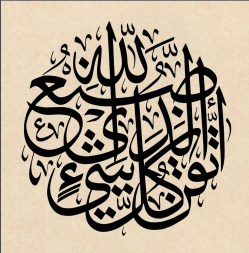 صُنْعَ اللَّهِ الَّذِي أَتْقَنَ كُلَّ شَيْءٍ